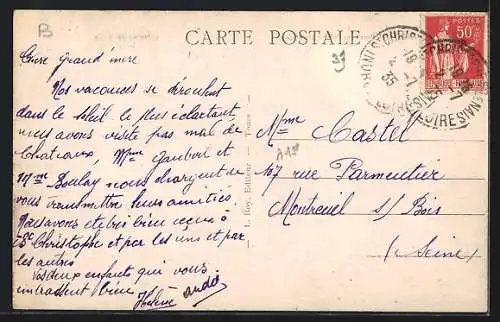 CARTE POSTALE
B
Chère grand'mère
Nos vacances se déroulent
dans le soleil le plus éclatant,
nous avons visité pas mal de
Chateaux, Mme Jaubert et
Mme Boulay nous chargent de
vous transmettre leurs amitiés.
Nous avons été très bien reçus à
St Christophe et par les uns et par
les autres
Vos deux enfants qui vous
embrassent bien
Hélène André
L. Roy, Editeur — Tours
Mme Castel
147 rue Parmentier
Montreuil s/ Bois
(Seine)
POSTES
50c
18 -7
35